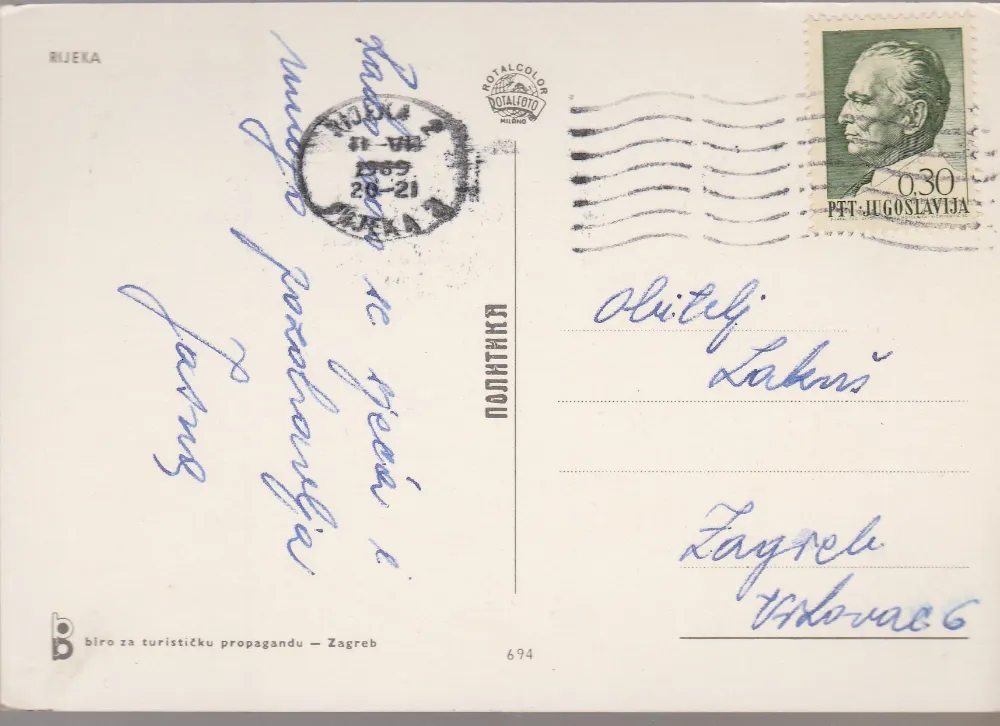 RIJEKA
ROTALCOLOR
ROTALFOTO
MILANO
RIJEKA 2
1969
20-21
RIJEKA 2
0,30
PTT·JUGOSLAVIJA
se sjeća i
mnogo pozdravlja
Jasna
ПОЛИТИКА
Obitelj
Lakuš
Zagreb
Vrhovac 6
biro za turističku propagandu — Zagreb
694